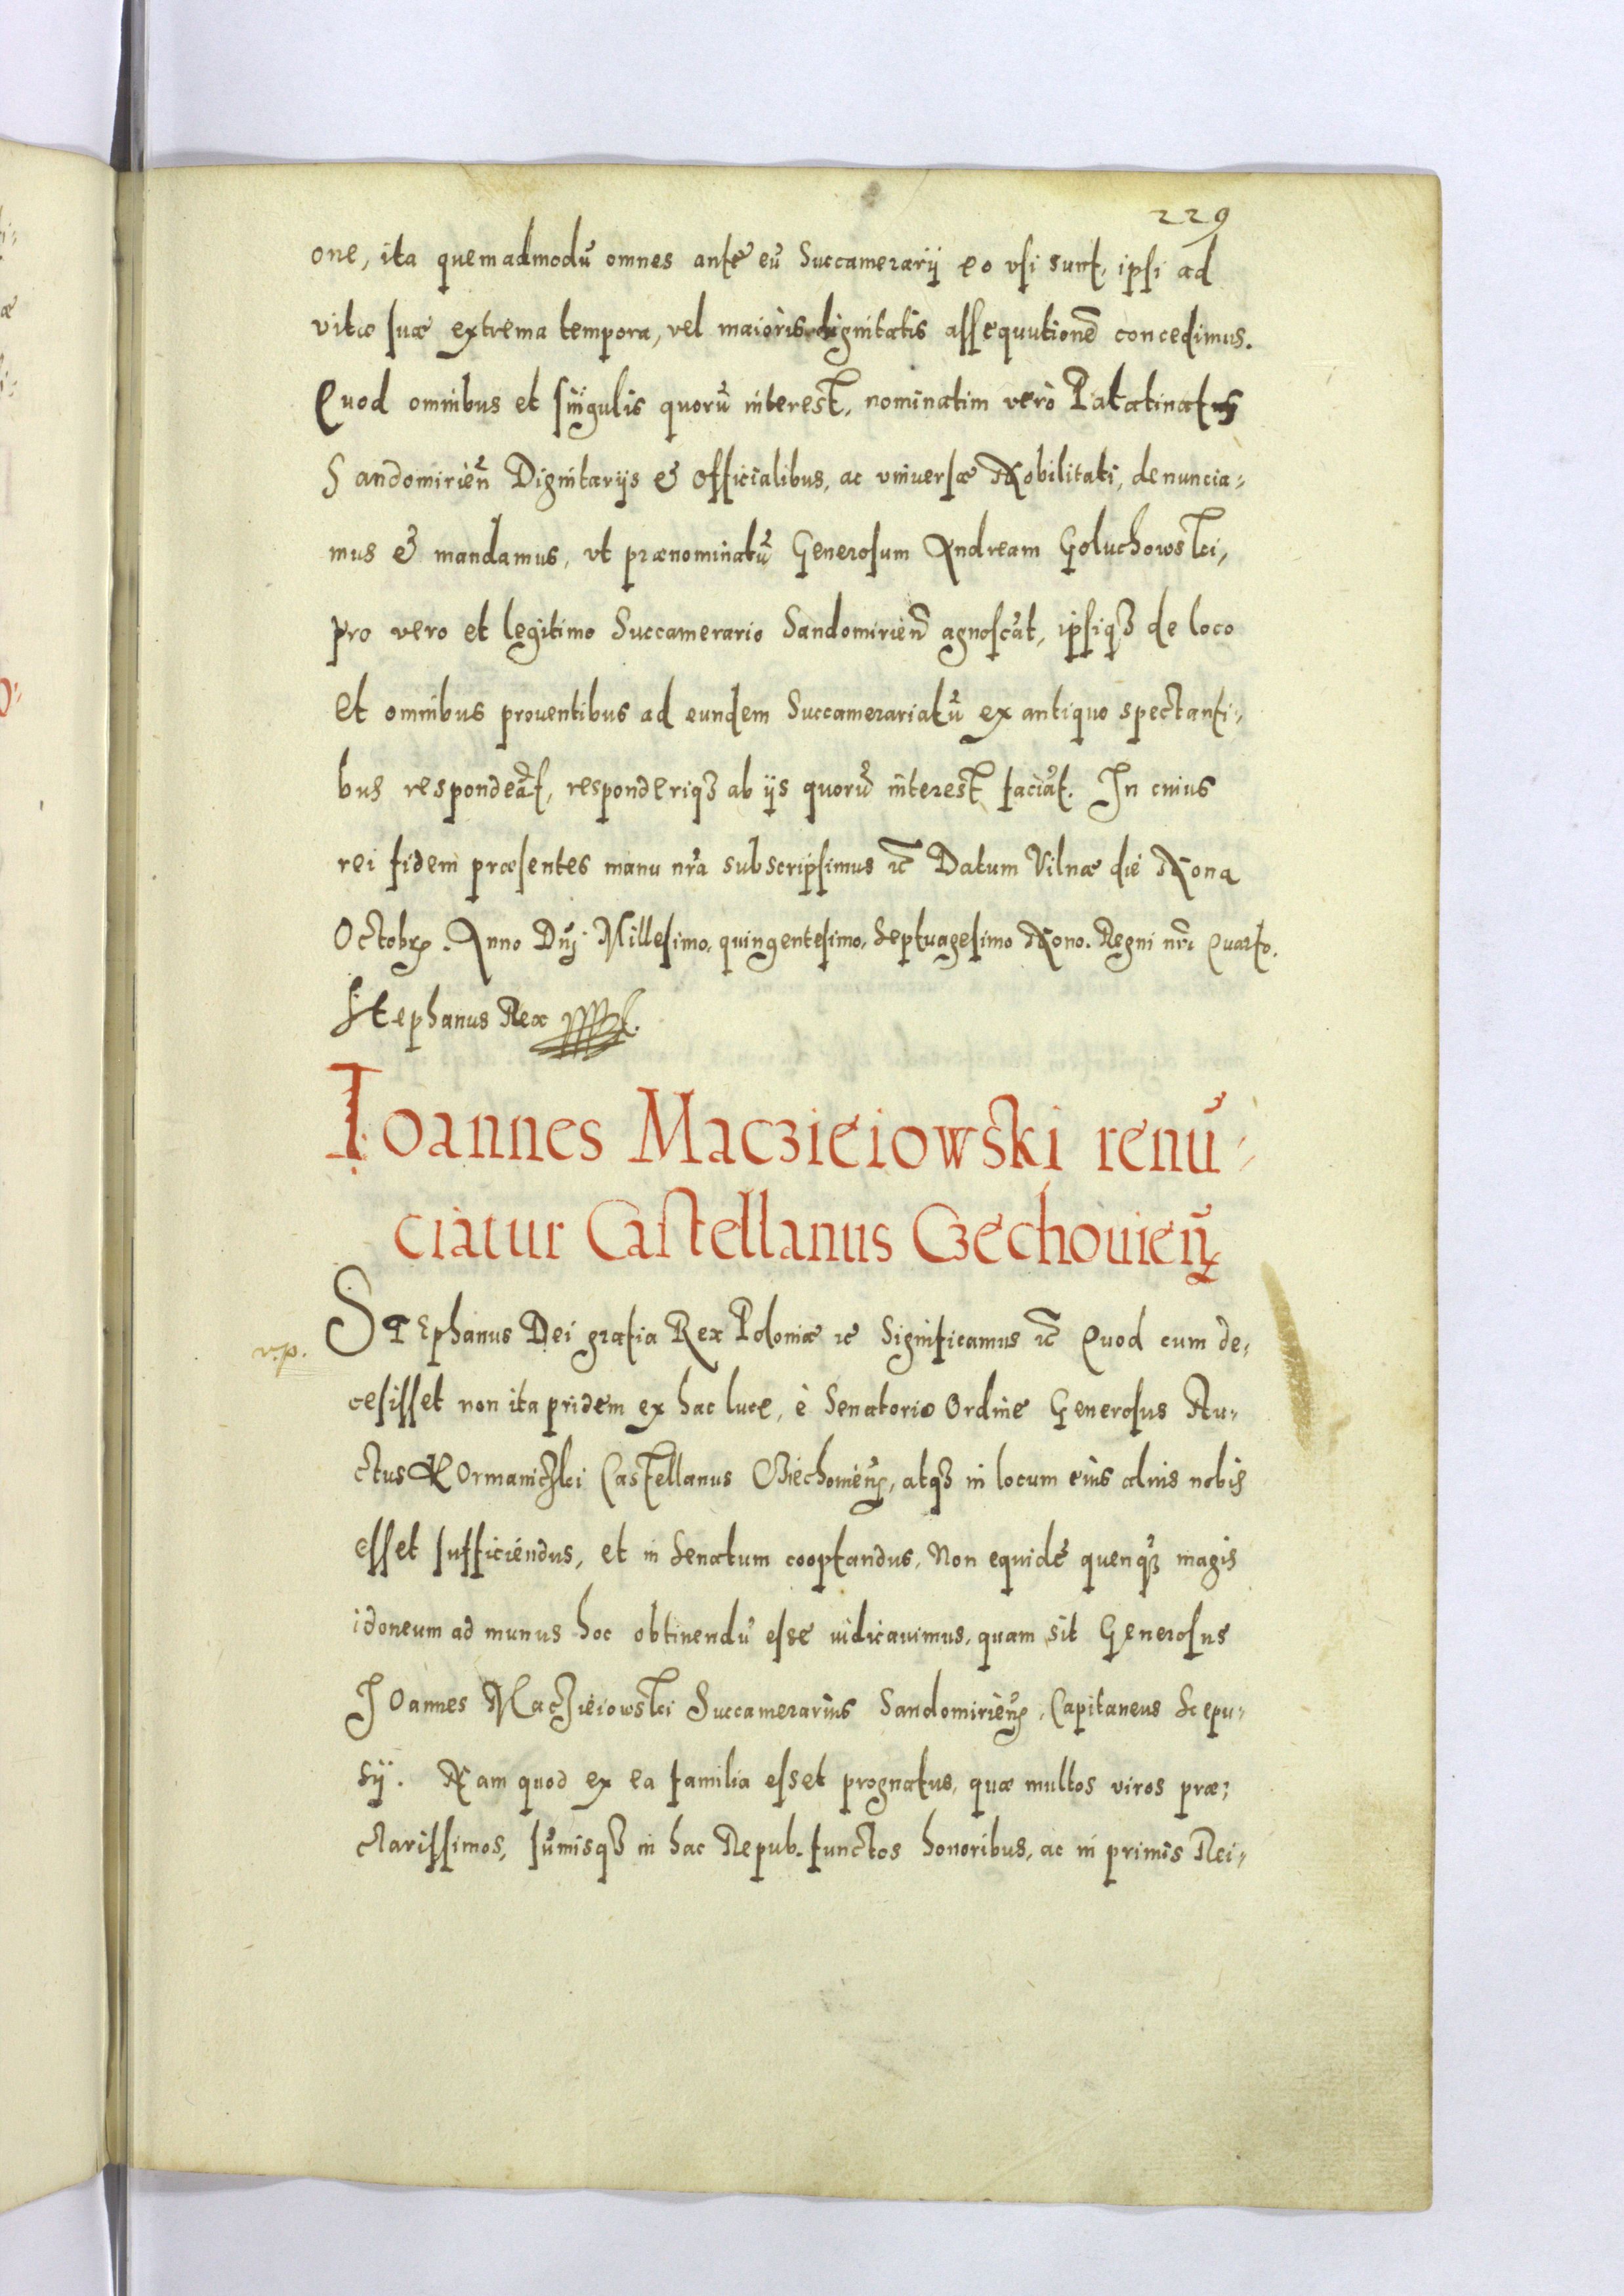 229
one, ita quemadmodũ omnes ante eũ Succamerarij eo vsi sunt, ipsi ad
vitæ suæ extrema tempora, vel maioris dignitatis assequutionẽ concedimus.
Quod omnibus et singulis quorũ interest, nominatim verò Palatinatus
Sandomirieñ Dignitarijs & Officialibus, ac vniuersæ Nobilitati, denuncia-
mus & mandamus, vt prænominatũ Generosum Andream Goluchowski,
pro vero et legitimo Succamerario Sandomirieñ agnoscãt, ipsiqꝫ de loco
et omnibus prouentibus ad eundem Succamerariatũ ex antiquo spectanti-
bus respondeãt, responderiqꝫ ab ijs quorũ interest faciãt. In cuius
rei fidem præsentes manu nr̃a subscripsimus ꝛc̃ Datum Vilnæ die Nona
Octobrꝭ. Anno Dñj. Millesimo, quingentesimo, Septuagesimo Nono. Regni nr̃i Quarto.
Stephanus Rex
Ioannes Maczieiowski renũ-
ciatur Castellanus Czechouieñ
v.p.
STEphanus Dei gratia Rex Poloniæ ꝛc Significamus ꝛc̃ Quod cum de-
cesisset non ita pridem ex hac luce, è Senatorio Ordine Generosus Au-
ctus Kormaniczki Castellanus Cziechouieñ, atqꝫ in locum eius alius nobis
esset sufficiendus, et in Senatum cooptandus, Non equidẽ quenqꝫ magis
idoneum ad munus hoc obtinendũ esse iudicauimus, quam sit Generosus
IOannes Maczieiowski Succamerarius Sandomirieñ, Capitaneus Scepu-
sij. Nam quod ex ea familia esset prognatus, quæ multos viros præ-
clarissimos, sũmisqꝫ in hac Repub. functos honoribus, ac in primis Rei-